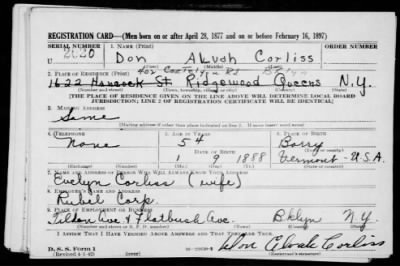 REGISTRATION CARD—(Men born on or after April 28, 1877 and on or before February 16, 1897)
SERIAL NUMBER 1. NAME (Print) ORDER NUMBER
U 2020 Don Alvah Corliss
2. PLACE OF RESIDENCE (Print)
1622 Hancock St Ridgewood Queens N.Y.
[THE PLACE OF RESIDENCE GIVEN ON THE LINE ABOVE WILL DETERMINE LOCAL BOARD
JURISDICTION; LINE 2 OF REGISTRATION CERTIFICATE WILL BE IDENTICAL]
3. MAILING ADDRESS
Same
4. TELEPHONE 5. AGE IN YEARS 6. PLACE OF BIRTH
None 54 Barry
DATE OF BIRTH
1 9 1888 Vermont - U.S.A.
7. NAME AND ADDRESS OF PERSON WHO WILL ALWAYS KNOW YOUR ADDRESS
Evelyn Corliss (wife)
8. EMPLOYER'S NAME AND ADDRESS
Rubel Corp.
9. PLACE OF EMPLOYMENT OR BUSINESS
Tilden Ave & Flatbush Ave. Bklyn N.Y.
I AFFIRM THAT I HAVE VERIFIED ABOVE ANSWERS AND THAT THEY ARE TRUE.
D. S. S. Form 1
(Revised 4-1-42)
Don Alvah Corliss